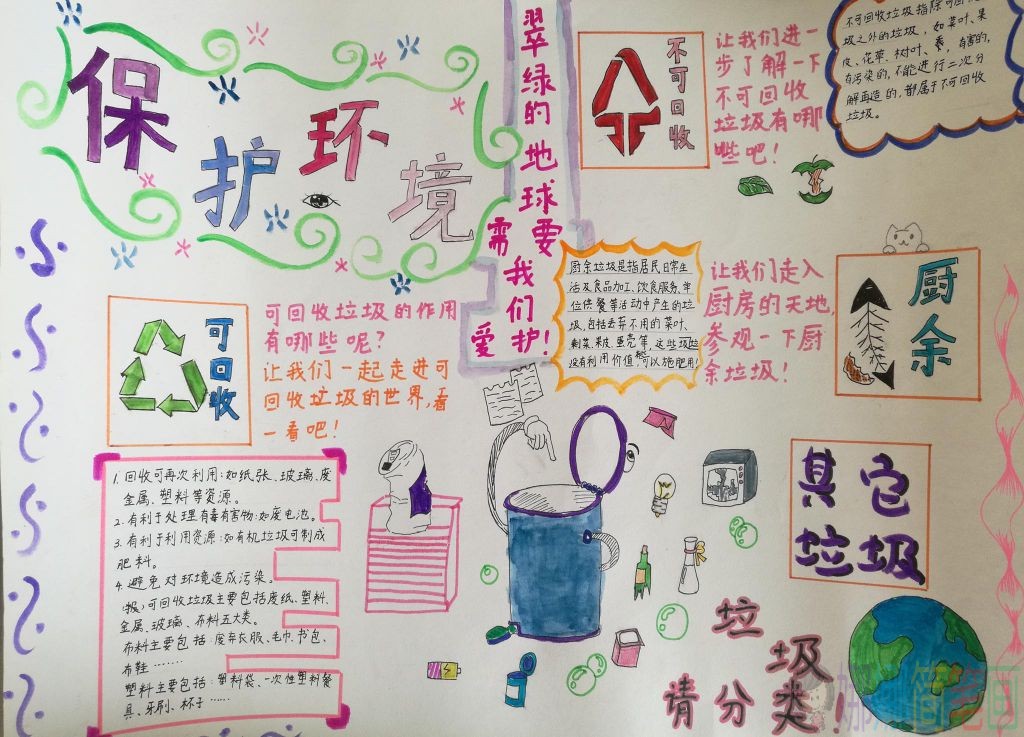 保护环境
翠绿的地球要
需
我们护!
爱
不可回收
让我们进一
步了解一下
不可回收
垃圾有哪
些吧!
不可回收垃圾指除可回
圾之外的垃圾,如菜叶、果
皮、花草、树叶、
有害的,
有污染的,不能进行二次分
解再造的,都属于不可回收
垃圾。
可回收
可回收垃圾的作用
有哪些呢?
让我们一起走进可
回收垃圾的世界,看
一看吧!
厨余垃圾是指居民日常生
活及食品加工、饮食服务、单
位供餐等活动中产生的垃
圾,包括丢弃不用的菜叶、
剩菜、果皮、蛋壳等,这些垃圾
没有利用价值,可以施肥用!
让我们走入
厨房的天地,
参观一下厨
余垃圾!
厨余
1.回收可再次利用:如纸张、玻璃、废
金属、塑料等资源。
2.有利于处理有毒有害物:如废电池。
3.有利于利用资源:如有机垃圾可制成
肥料。
4.避免对环境造成污染。
可回收垃圾主要包括废纸、塑料、
金属、玻璃、布料五大类。
布料主要包括:废弃衣服、毛巾、书包、
布鞋……
塑料主要包括:塑料袋、一次性塑料餐
具、牙刷、杯子……
其它
垃圾
垃圾
请分类!
简笔画